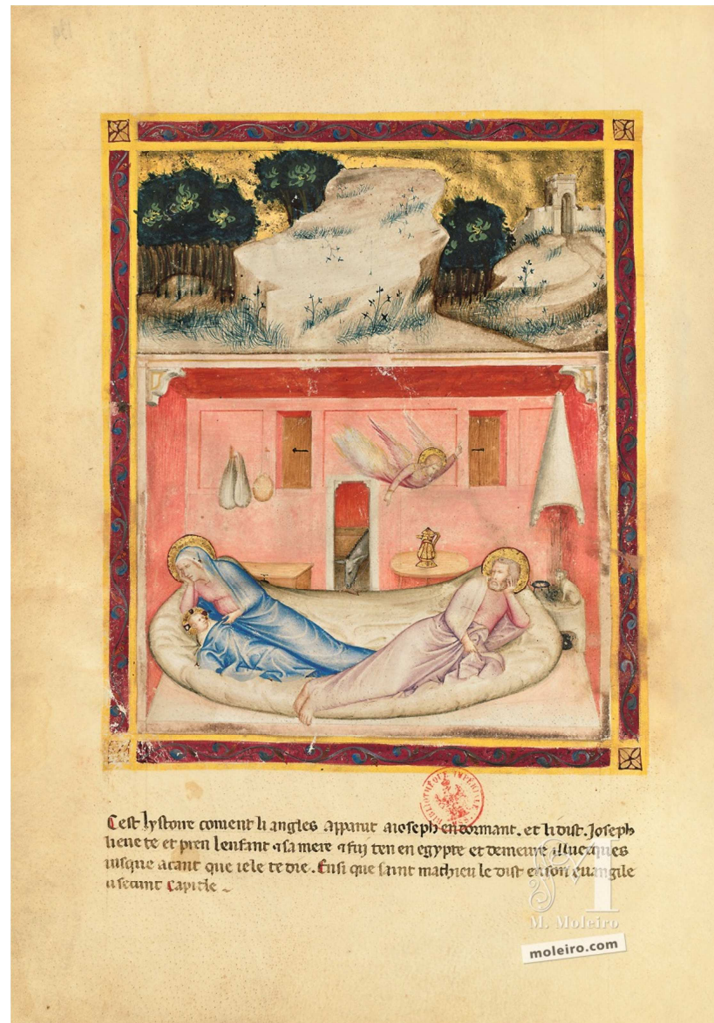 Cest lystoire coment li angles apparut a ioseph en dormant. et li dist. Joseph
lieue te et pren lenfant ⁊ sa mere ⁊ fuy ten en egypte et demeure illuecques
iusque atant que ie le te die. Ensi que saint mathieu le dist en son euangile
u secunt capitle
BIBLIOTHÈQUE IMPÉRIALE
M
M. Moleiro
moleiro.com